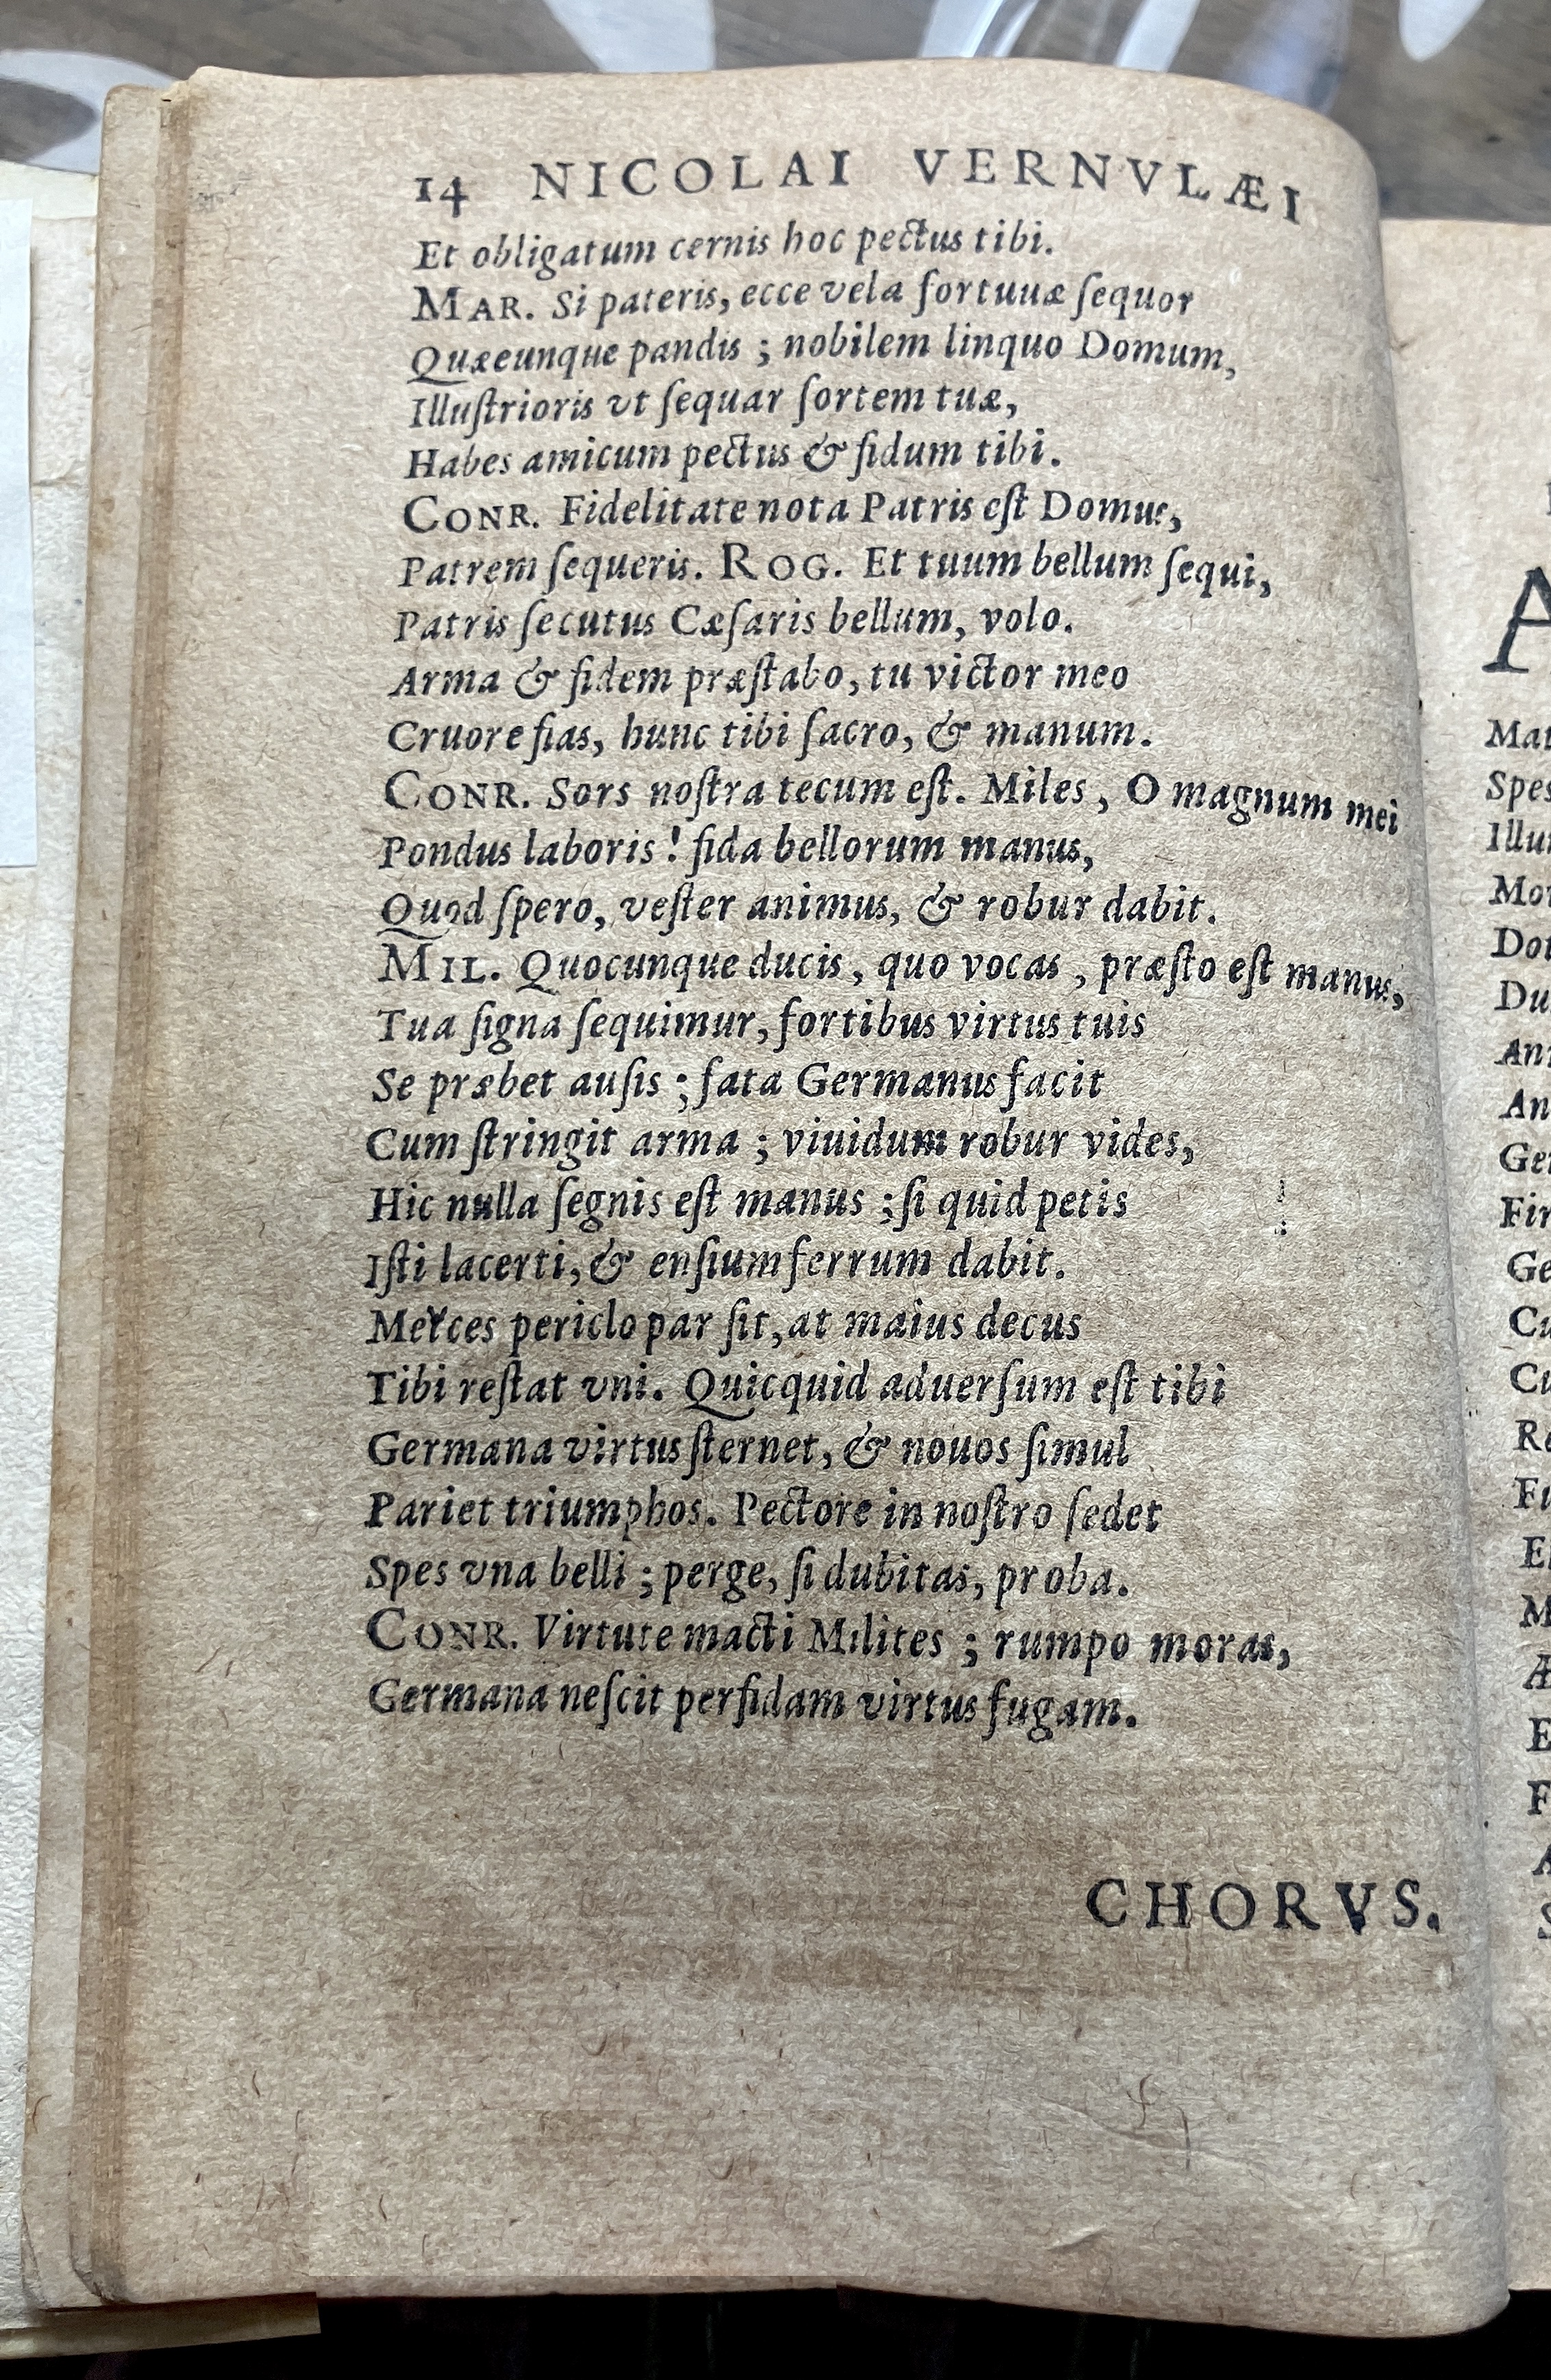 14 NICOLAI VERNVLÆI
Et obligatum cernis hoc pectus tibi.
MAR. Si pateris, ecce vela fortuuæ ſequor
Quæeunque pandis ; nobilem linquo Domum,
Illuſtrioris vt ſequar ſortem tuæ,
Habes amicum pectus & fidum tibi.
CONR. Fidelitate nota Patris eſt Domus,
Patrem ſequeris. ROG. Et tuum bellum ſequi,
Patris ſecutus Cæſaris bellum, volo.
Arma & fidem præſtabo, tu victor meo
Cruore fias, hunc tibi ſacro, & manum.
CONR. Sors noſtra tecum eſt. Miles, O magnum mei
Pondus laboris ! fida bellorum manus,
Quod ſpero, veſter animus, & robur dabit.
MIL. Quocunque ducis, quo vocas, præſto eſt manus,
Tua ſigna ſequimur, fortibus virtus tuis
Se præbet auſis ; fata Germanus facit
Cum ſtringit arma ; viuidum robur vides,
Hic nulla ſegnis eſt manus ; ſi quid petis
Iſti lacerti, & enſium ferrum dabit.
Merces periclo par ſit, at maius decus
Tibi reſtat vni. Quicquid aduerſum eſt tibi
Germana virtus ſternet, & nouos ſimul
Pariet triumphos. Pectore in noſtro ſedet
Spes vna belli ; perge, ſi dubitas, proba.
CONR. Virtute macti Milites ; rumpo moras,
Germana neſcit perfidam virtus fugam.
CHORVS.